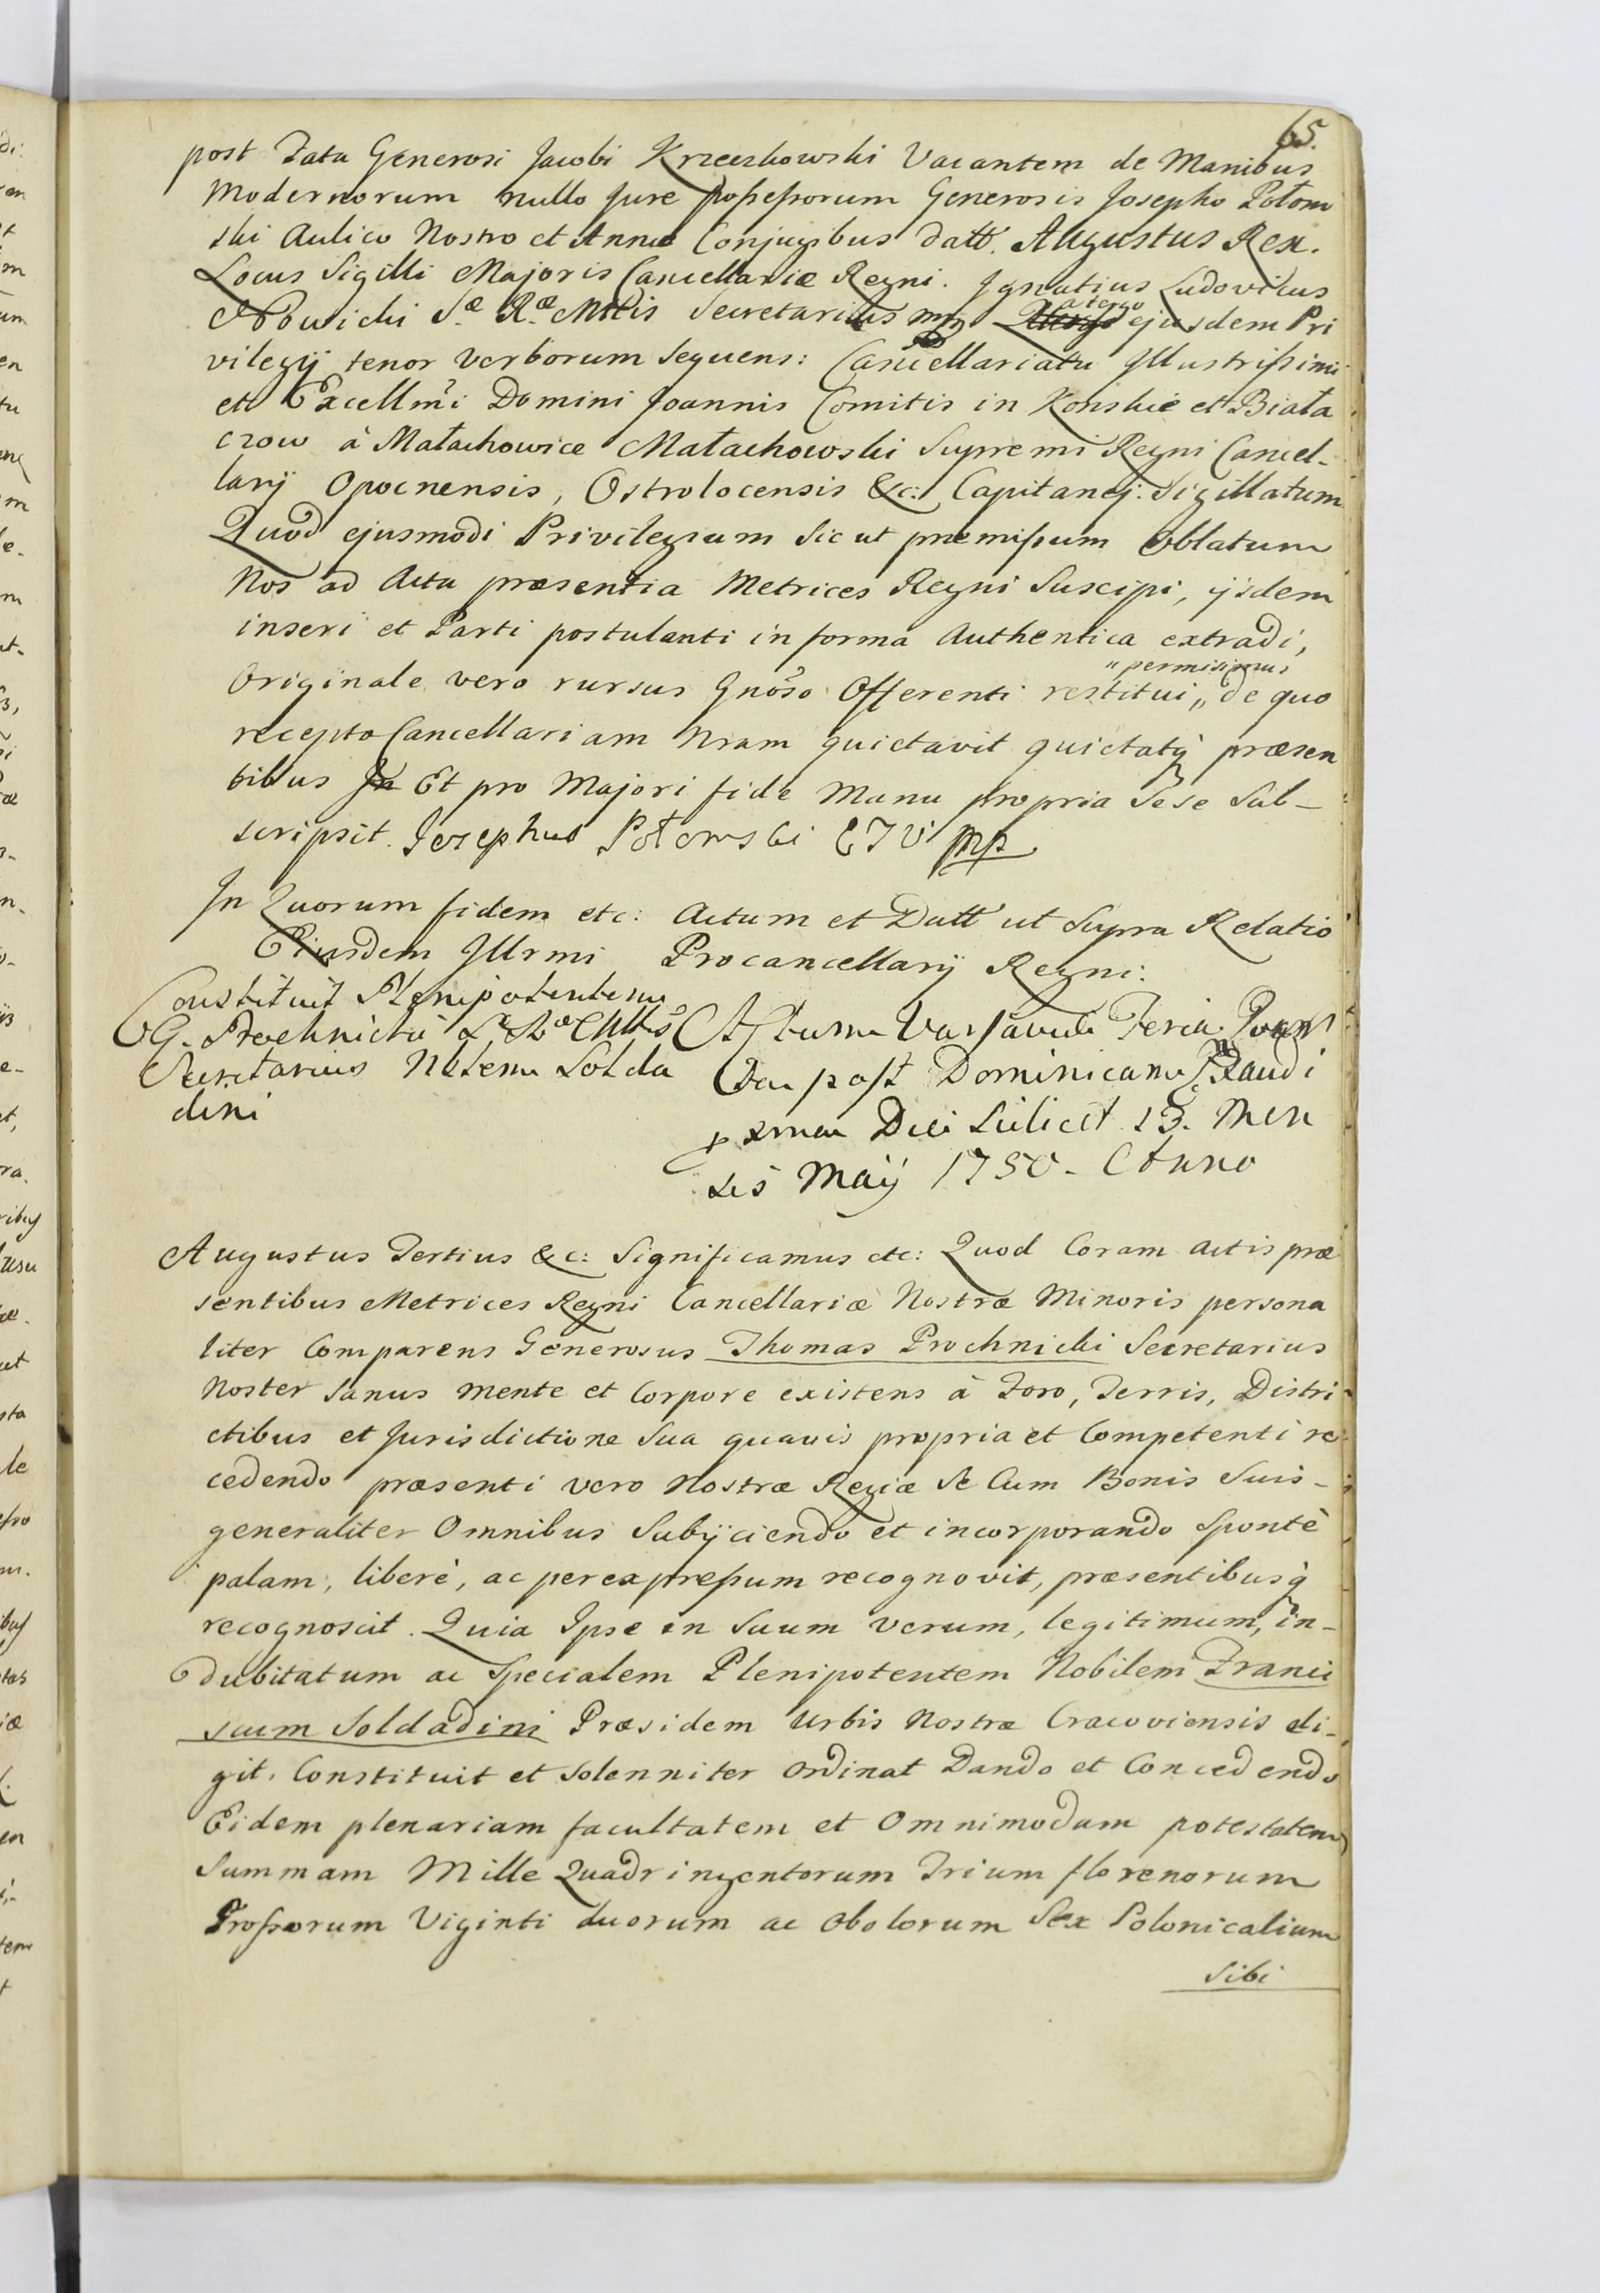 65.
post Fata Generosi Jacobi Krzeczkowski Vacantem de Manibus
Modernorum nullo Jure possessorum Generosis Josepho Potom
ski Aulico Nostro et Annæ Conjugibus datt. Augustus Rex.
Locus Sigilli Majoris Cancellariæ Regni. Ignatius Ludovicus
Nowicki Sæ Ræ Mttis Secretarius mp a tergo ejusdem Pri
vilegij tenor verborum sequens: Cancellariatu Illustrissimi
et Excellmi Domini Joannis Comitis in Konskie et Biała
czow à Małachowice Małachowski Supremi Regni Cancel-
larij Opocnensis, Ostrolocensis &c: Capitanej. Sigillatum
Quod ejusmodi Privilegium sic ut præmissum Oblatum
Nos ad Acta præsentia Metrices Regni Suscipi, ijsdem
inseri et Parti postulanti in forma Authentica extradi,
"permisimus
Originale vero rursus Gnoso Offerenti restitui „ de quo
recepto Cancellariam Nram quietavit quietatq præsen
tibus Et pro Majori fide Manu propria Sese Sub-
scripsit. Josephus Potomski mp
In Quorum fidem etc: Actum et Datt ut Supra Relatio
Ejusdem Illrmi Procancellarij Regni.
Constituit Plenipotentem
G. Prochnicki Sæ Ræ Mttis
Secretarius Nblem Solda
dini
Actum Varsaviæ Feria Quar
ta post Dominicam Exaudi
Die Scilicet 13. Men
sis Maij 1750. Anno
Augustus Tertius &c: Significamus etc: Quod Coram Actis præ
sentibus Metrices Regni Cancellariæ Nostræ Minoris persona
liter Comparens Generosus Thomas Prochnicki Secretarius
Noster Sanus mente et Corpore existens à Foro, Terris, Distri-
ctibus et Jurisdictione Sua quavis propria et Competenti re-
cedendo præsenti vero Nostræ Regiæ Se Cum Bonis Suis-
generaliter Omnibus Subijciendo et incorporando Spontè
palam, liberè, ac per expressum recognovit, præsentibusq̀
recognoscit. Quia Ipse in Suum verum, legitimum, in-
dubitatum ac Specialem Plenipotentem Nobilem Franci
scum Soldadini Præsidem Urbis Nostræ Cracoviensis eli-
git, Constituit et Solenniter Ordinat Dando et Concedendo
Eidem plenariam facultatem et Omnimodam potestatem
Summam Mille Quadringentorum Trium florenorum
Grossorum Viginti duorum ac Obolorum Sex Polonicalium
Sibi